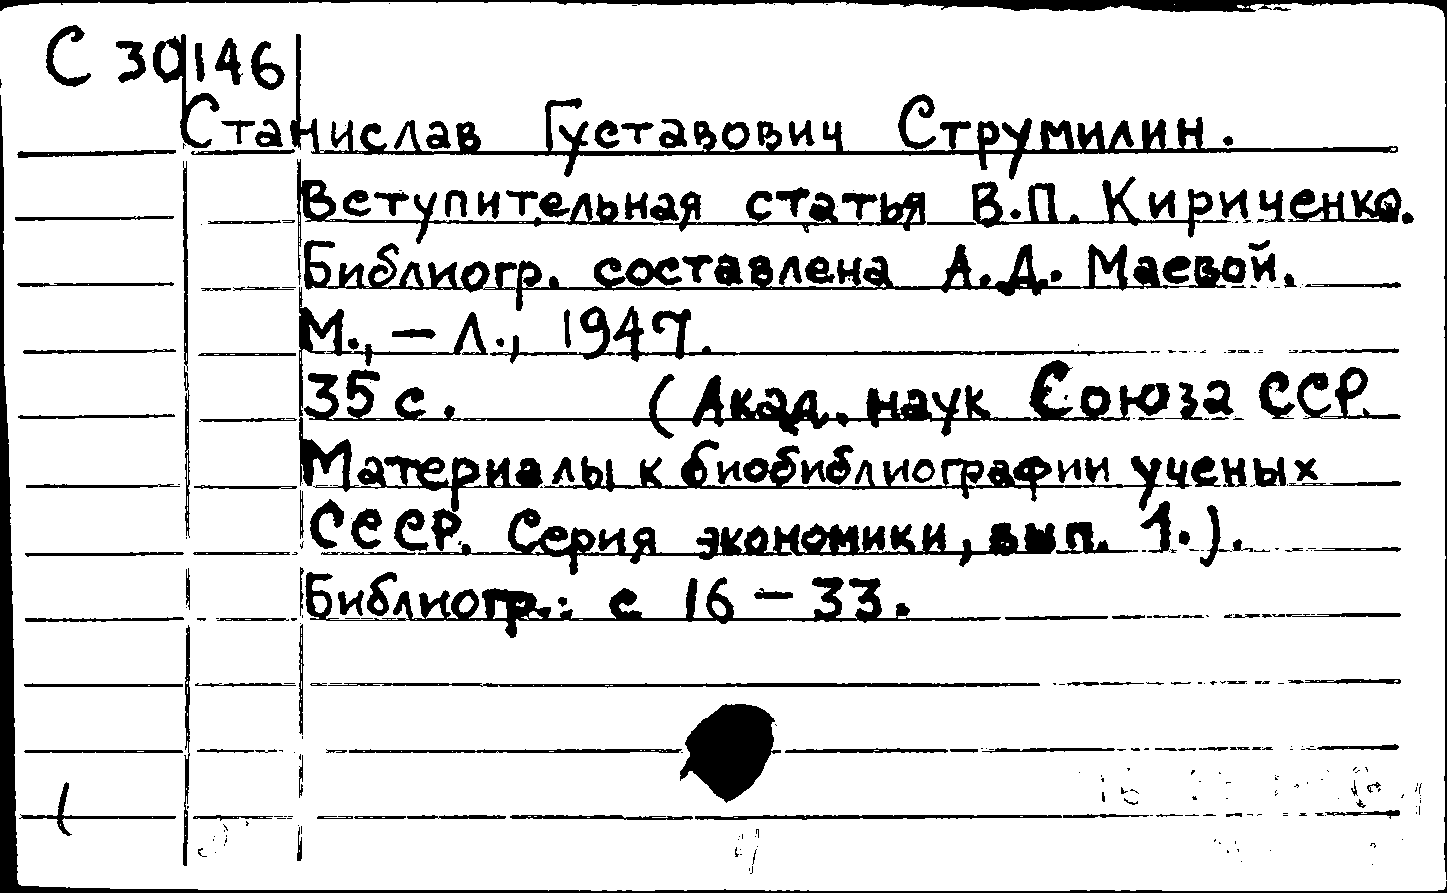 С 30146
Станислав Густавович Струмилин.
Вступительная статья В.П. Кириченко.
Библиогр. составлена А.Д. Маевой.
М., – Л., 1947.
35 с. (Акад. наук Союза ССР.
Материалы к биобиблиографии ученых
СССР. Серия экономики, вып. 1.).
Библиогр.: с 16 – 33.